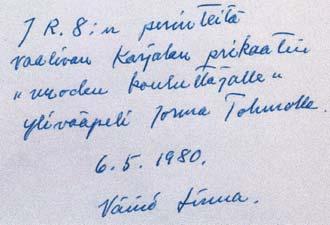 JR. 8:n perinteitä
vaalivan Karjalan prikaatin
"vuoden kouluttajalle"
ylivääpeli Jorma Tohmolle.
6.5.1980.
Väinö Linna.